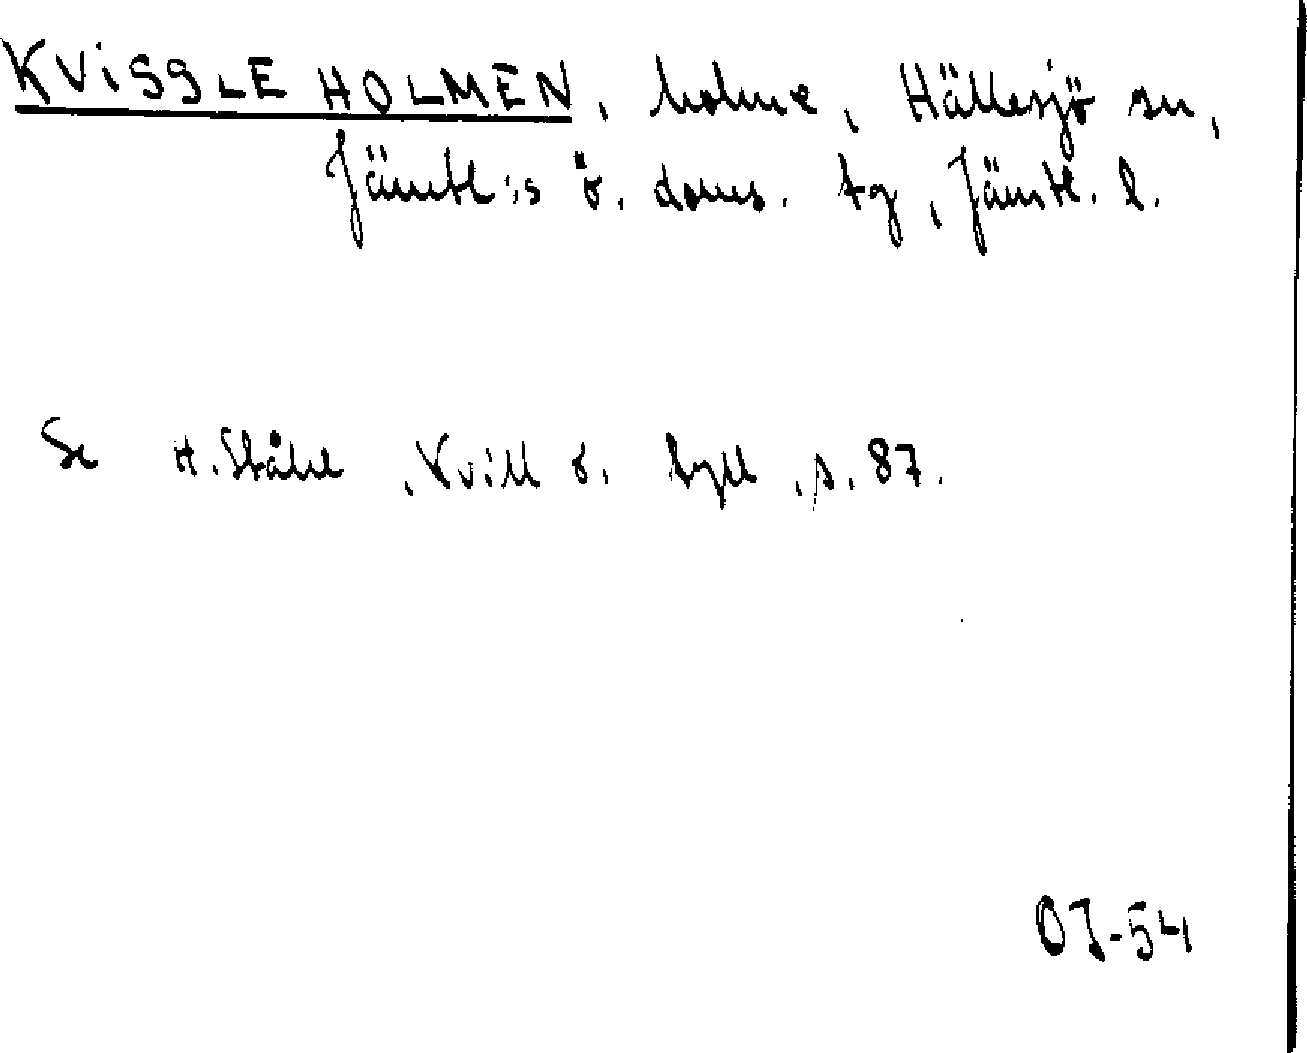 KVISSLE HOLMEN, holme, Hällesjö sn,
Jämtl:s ö. doms. tg, Jämtl. l.
Se H. Ståhl, Kvill o. tyll, s. 87.
OJ-54